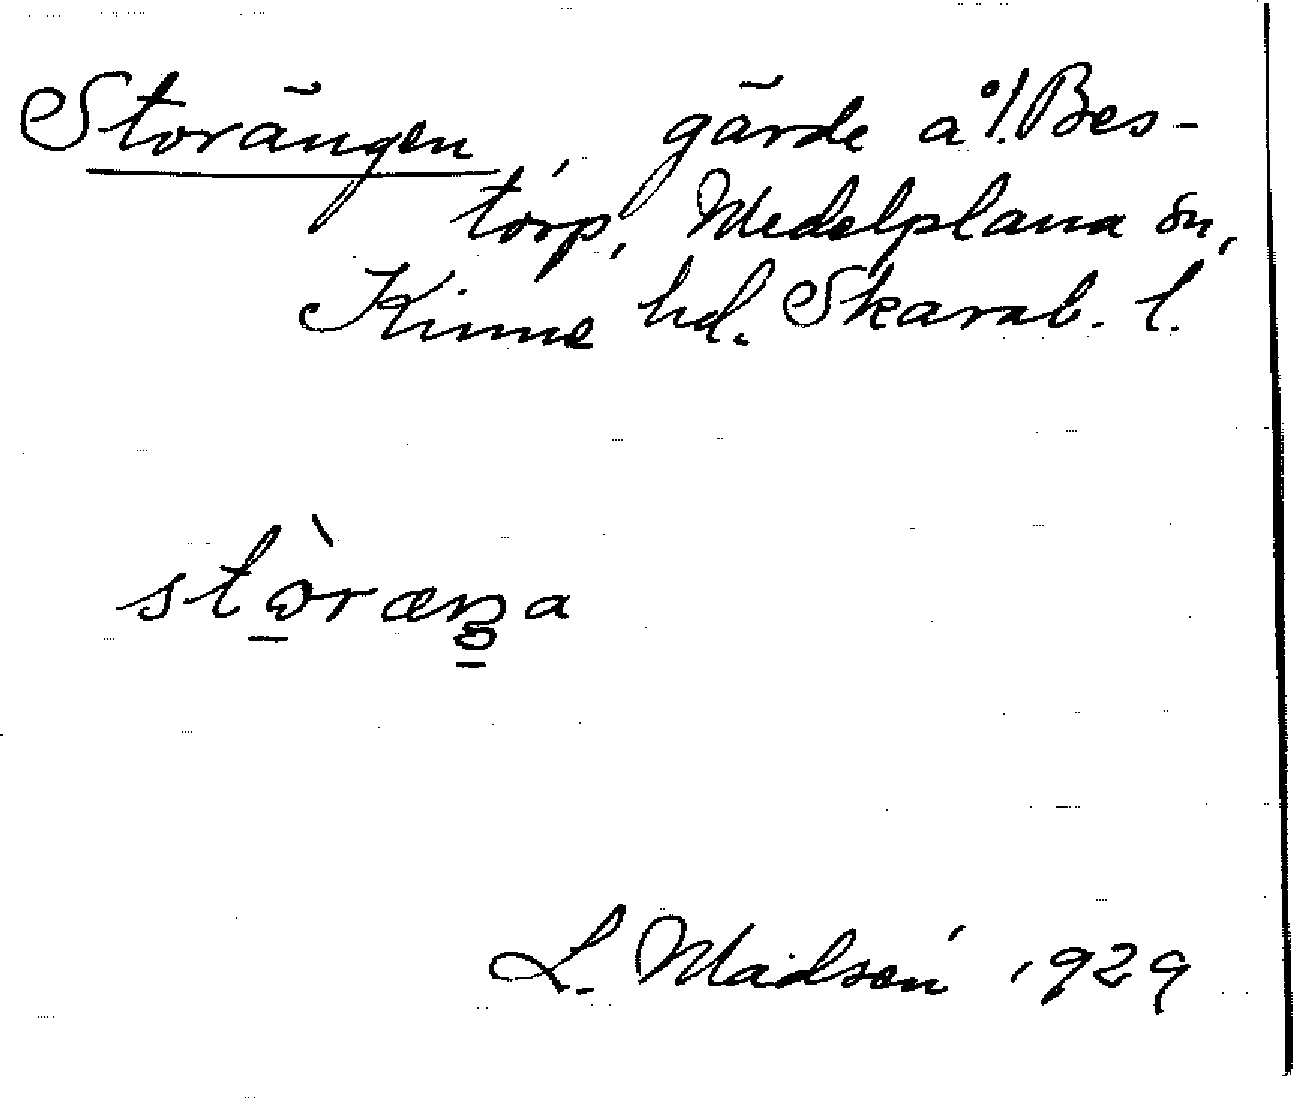 Storängen, gärde å Bes-
torp, Medelplana sn,
Kinne hd. Skarab. l.
stὼræŋa
L. Madsén 1929